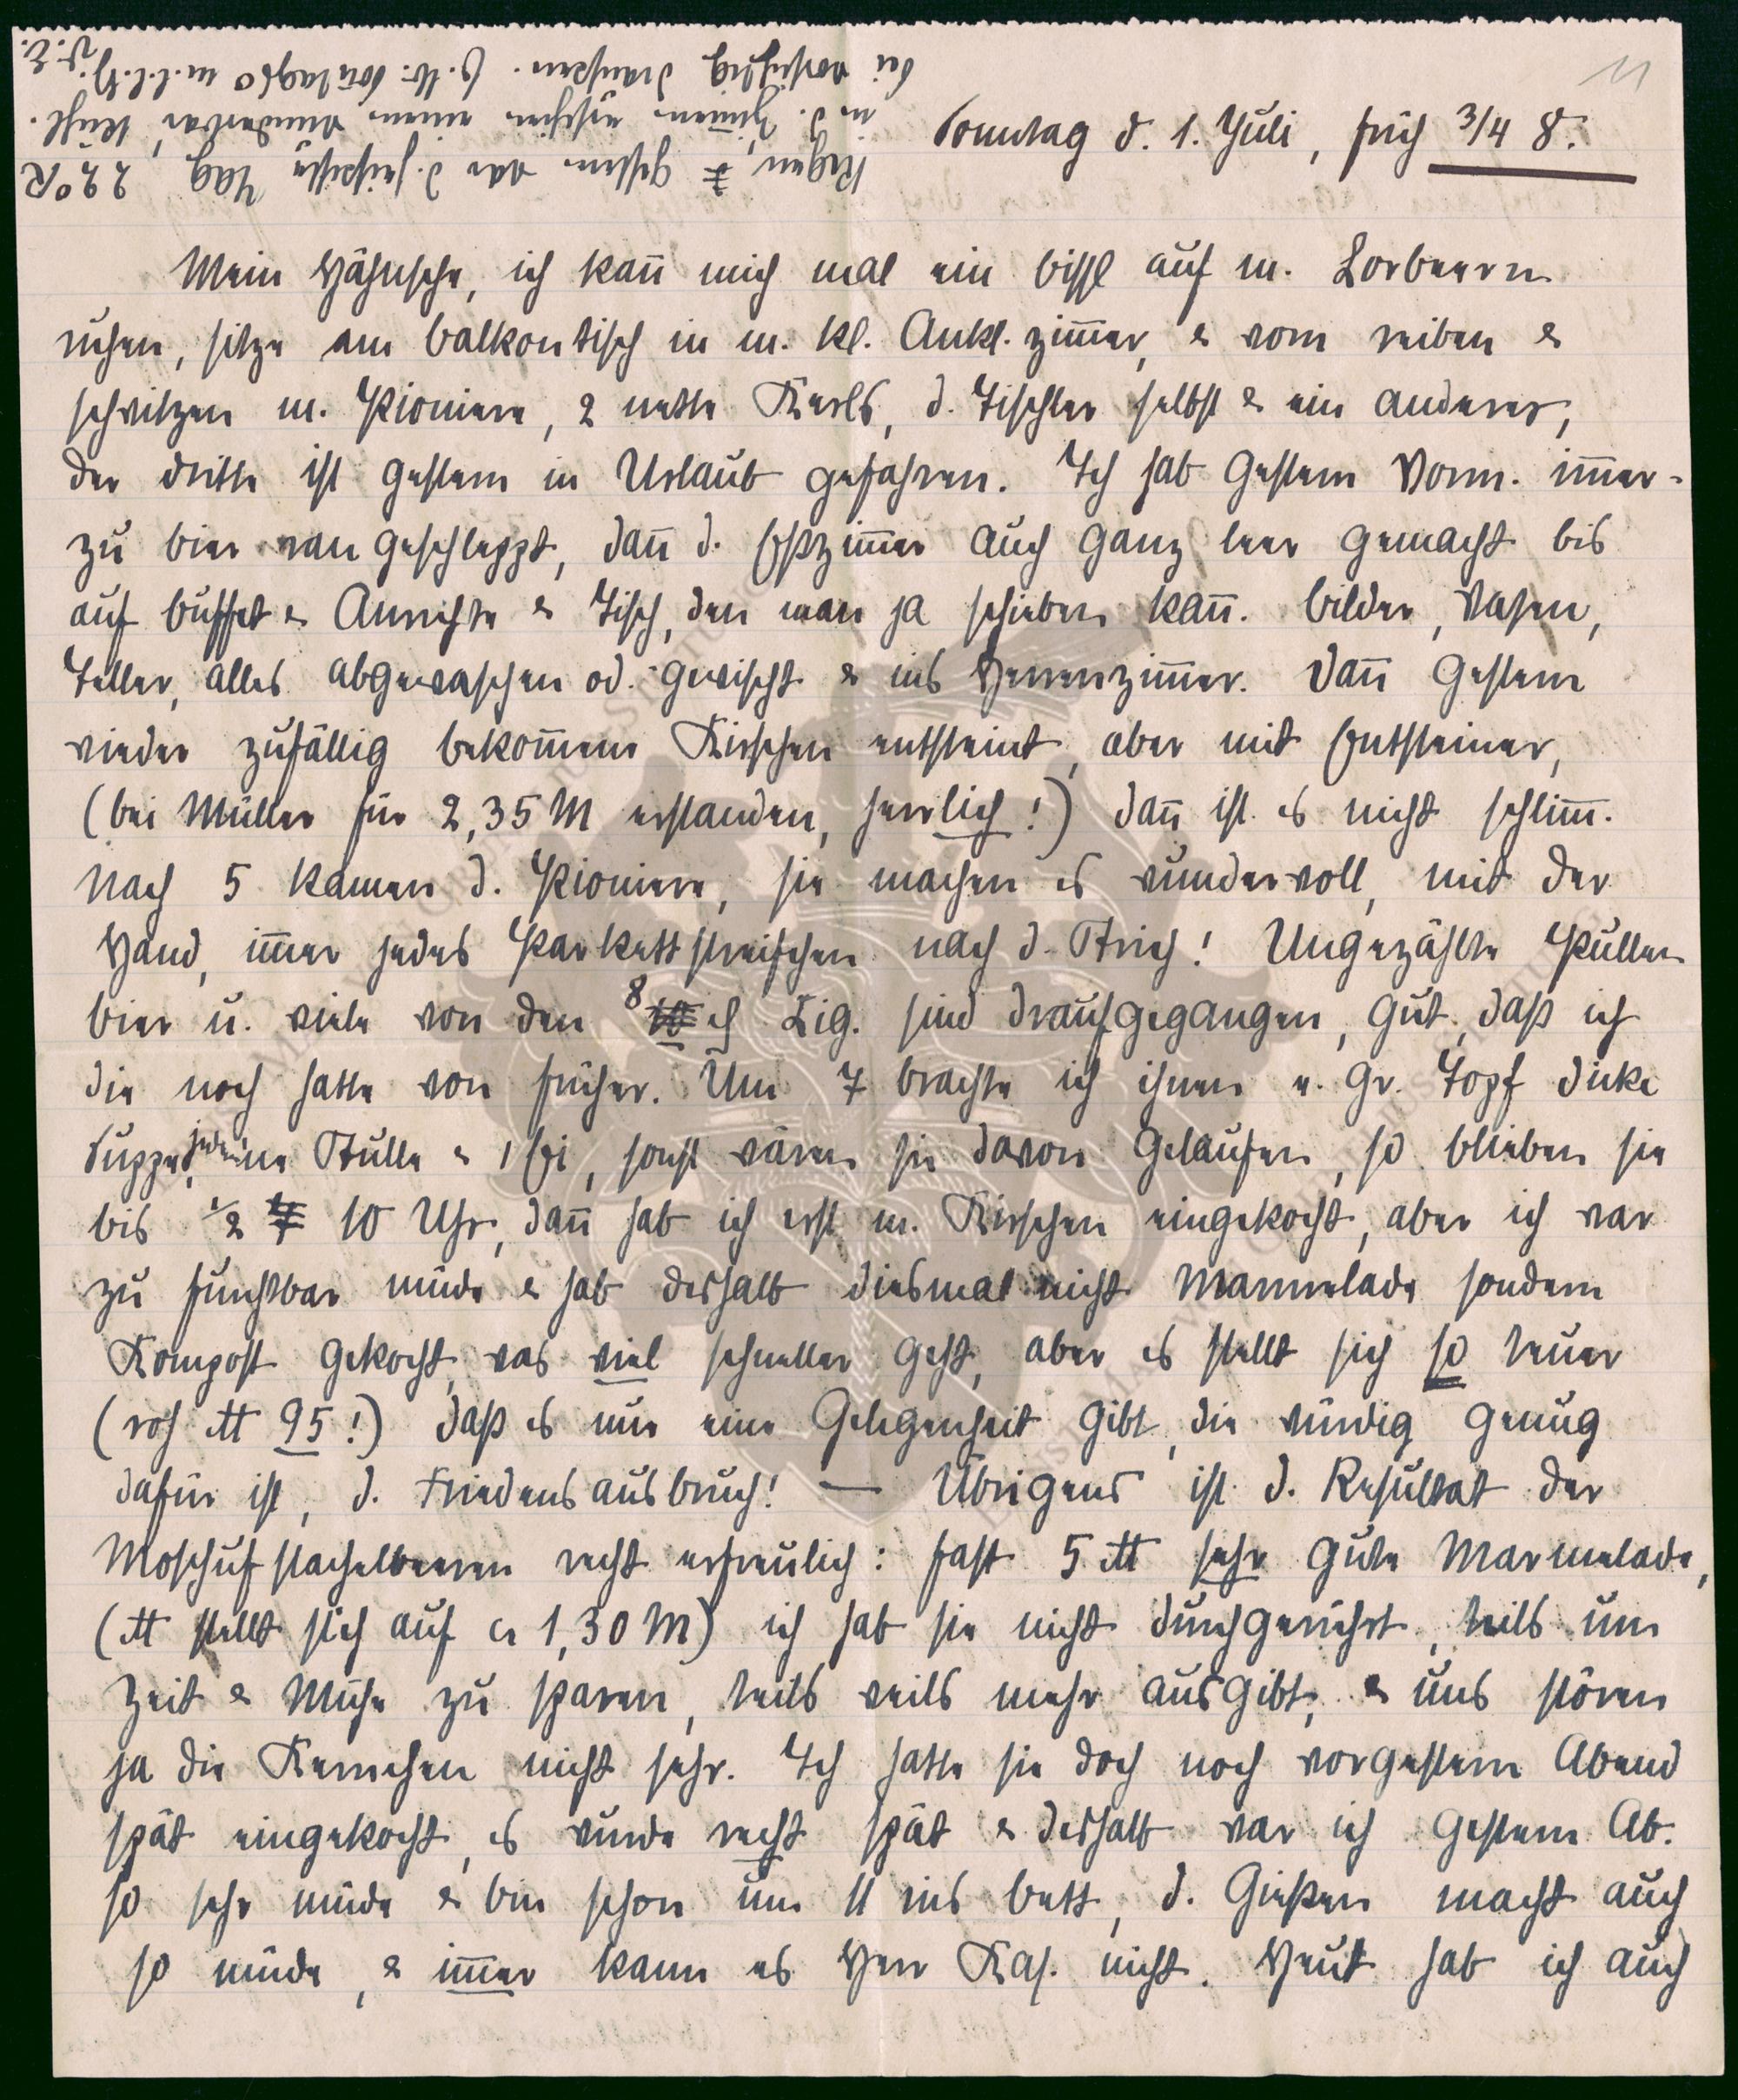 11
Sonntag d. 1. Juli, früh 3/4 8.
Mein Hähnsche, ich kan̄ mich mal ein bissl auf m. Lorbeern
ruhen, sitze am Balkontisch in m. kl. Ankl. zim̄er, & vorn reiben &
schwitzen m. Pioniere, 2 nette Kerls, d. Tischler selbst & ein anderer,
der dritte ist gestern in Urlaub gefahren. Ich hab gestern Vorm. im̄er-
zu Bier rangeschleppt, dan̄ d. Eßzim̄er auch ganz leer gemacht bis
auf Buffet & Anrichte & Tisch, den man ja schieben kan̄. Bilder, Vasen,
Teller, alles abgewaschen od. gewischt & ins Herrenzim̄er. Dan̄ gestern
wieder zufällig bekom̄ene Kirschen entsteint, aber mit Entsteiner,
(bei Müller für 2,35 M erstanden, herrlich!) dan̄ ist es nicht schlim̄.
Nach 5 kamen d. Pioniere, sie machen es wundervoll, mit der
Hand, im̄er jedes Parkettstreifchen nach d. Strich! Ungezählte Pullen
Bier u. viele von den 8 10 ch Zig. sind draufgegangen, gut, daß ich
die noch hatte von früher. Um 7 brachte ich ihnen e. gr. Topf dicke
Suppe, jedem eine Stulle & 1 Ei, sonst wären sie davon gelaufen, so blieben sie
bis 1/2 7 10 Uhr, dan̄ hab ich erst m. Kirschen eingekocht, aber ich war
zu furchtbar müde & hab deshalb diesmal nicht Marmelade sondern
Kompost gekocht, was viel schneller geht, aber es stellt sich so teuer
(roh ℔ 95!) daß es nur eine Gelegenheit gibt, die würdig genug
dafür ist, d. Friedensausbruch! — Übrigens ist d. Resultat der
Moschufstachelbeeren recht erfreulich: fast 5 ℔ sehr gute Marmelade,
(℔ stellt sich auf ca 1,30 M) ich hab sie nicht durchgerührt, teils um
Zeit & Mühe zu sparen, teils weils mehr ausgibt, & uns stören
ja die Kernchen nicht sehr. Ich hatte sie doch noch vorgestern Abend
spät eingekocht, es wurde recht spät & deshalb war ich gestern Ab.
so sehr müde & bin schon um 11 ins Bett, d. Gießen macht auch
so müde, & im̄er kann es Herr Kas. nicht. Heut hab ich auch
Regen, & gestern war d. heißeste Tag 22°R
in d. Zim̄ern erschien einem wunderbar, kühl.
bei draußen.